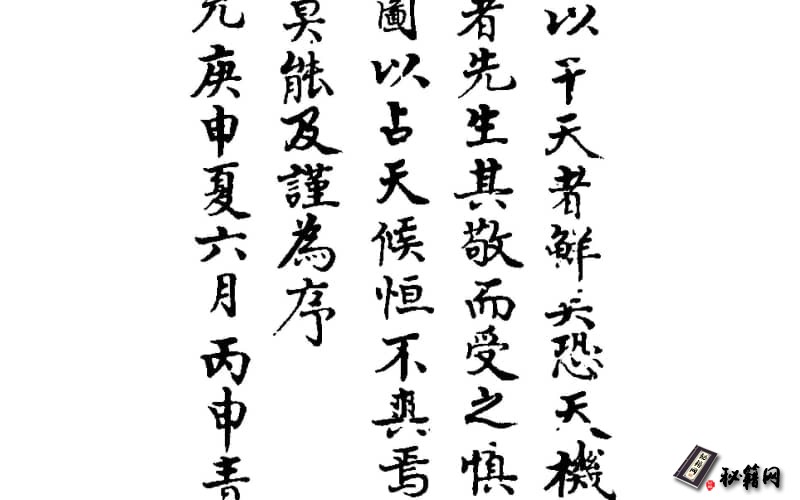 以干天者鮮矣恐天機
者先生其敬而受之慎
圖以占天候恒不爽焉
莫能及謹為序
元庚申夏六月丙申青
秘籍网